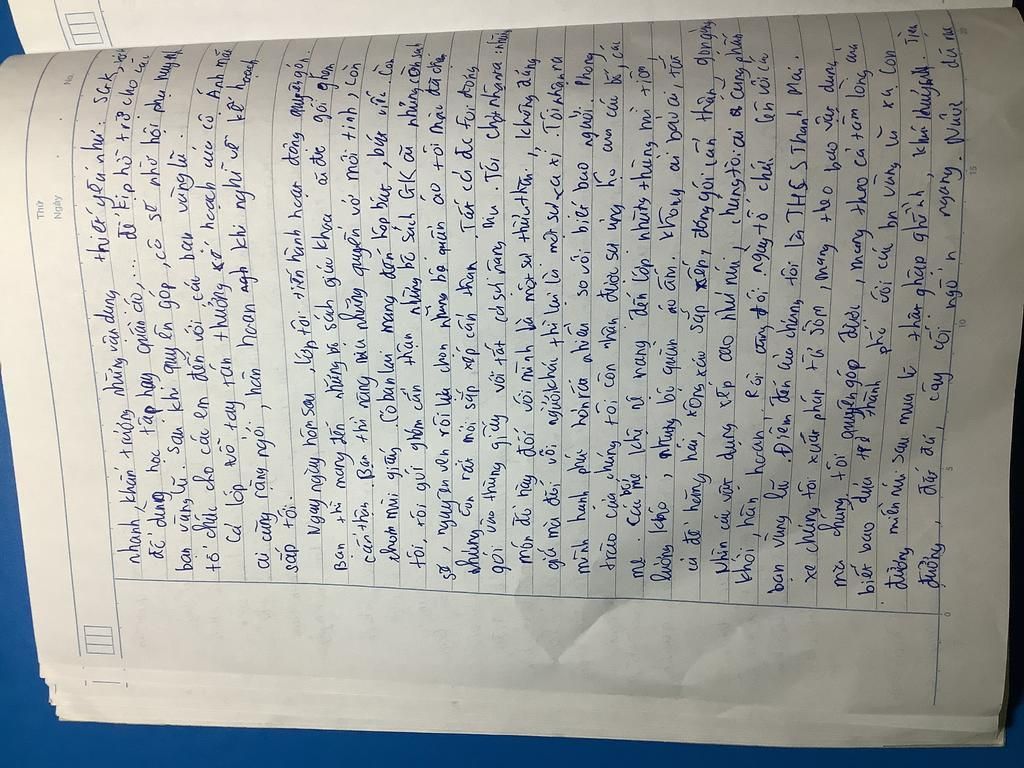 Thứ
Ngày
No.
nhanh, khẩn trương những vận dụng thiết yếu như: SGK,
đồ dùng học tập hay quần áo,... để kịp hỗ trợ cho các
bạn vùng lũ. Sau khi quyên góp, cô sẽ nhờ hội phụ huynh
tổ chức cho các em đến với các bạn vùng lũ.
Cả lớp vỗ tay tán thưởng kế hoạch của cô. Ánh mắt
ai cũng rạng ngời, hân hoan khi nghĩ về kế hoạch
sắp tới.
Ngay ngày hôm sau, lớp tôi tiến hành hoạt động quyên góp.
Bạn thì mang đến những bộ sách giáo khoa đã được gói ghém
cẩn thận. Bạn thì mang bao những quyển vở mới tinh, còn
thơm mùi giấy. Có bạn lại mang đến hộp bút, bút viết. Còn
tôi, tôi gói ghém cẩn thận những bộ sách GK cũ nhưng còn
nguyên vẹn rồi lựa chọn những bộ quần áo tôi mặc đã
nhưng còn rất mới sắp xếp cẩn thận. Tất cả được tôi đóng
gói vào thùng giấy với tất cả sự nâng niu. Tôi chợt nhận ra: những
món đồ này đối với mình là một sự thừa thãi, không đáng
giá mà đối với người khác thì lại là một sự xa xỉ. Tôi nhận ra
mình hạnh phúc hơn rất nhiều so với biết bao người. Phong
trào của chúng tôi còn nhận được sự ủng hộ của các bố, các
mẹ. Các bố mẹ khệ nệ mang đến lớp những thùng mì tôm,
lương khô, những bộ quần áo ấm. Không ai bảo ai, tất
cả đều hăng hái, xông xáo sắp xếp, đóng gói cẩn thận, gọn gàng.
Nhìn các vật dụng xếp cao như núi, chúng tôi ai cũng phấn
khởi, hân hoan. Rồi cũng đợi ngày tổ chức đến với các
bạn vùng lũ. Điểm đến của chúng tôi là THCS Thanh Mai.
Xe chúng tôi xuất phát từ sớm, mang theo bao vật dụng
mà chúng tôi quyên góp được, mang theo cả tấm lòng của
biết bao đứa trẻ thành phố với các bạn vùng lũ xa. Con
đường miền núi sau mưa lũ thật gập ghềnh, khúc khuỷu. Trên
đường, đất đá, cây cối ngổn ngang. Nước